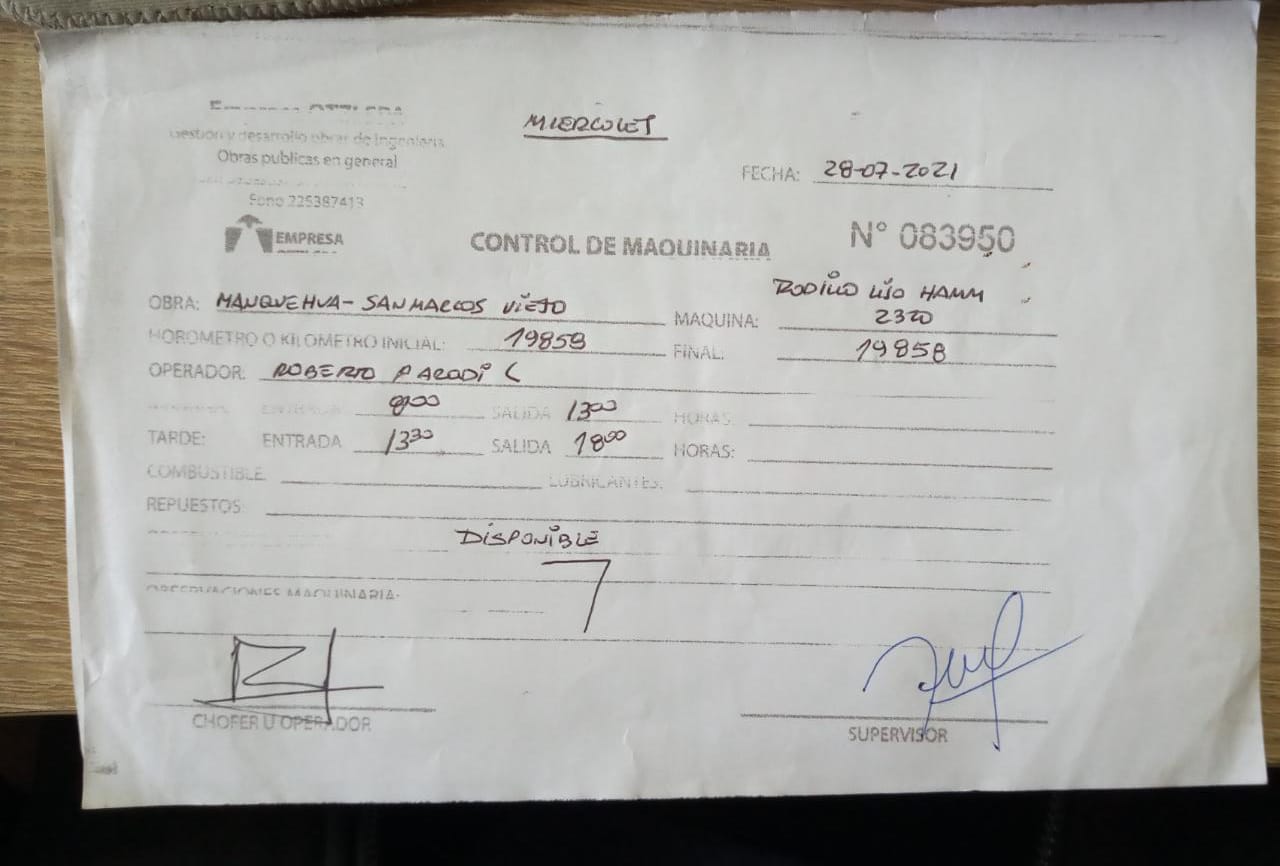 Empresa
MIERCOLES
Gestion y desarrollo obras de Ingenieria
Obras publicas en general
FECHA: 28-07-2021
Fono 225387413
EMPRESA
CONTROL DE MAQUINARIA
N° 083950
RODILLO LISO HAMM
OBRA: MANQUEHUA - SAN MARCOS VIEJO MAQUINA: 2320
HOROMETRO O KILOMETRO INICIAL: 19858 FINAL: 19858
OPERADOR: ROBERTO PARODI C
ENTRADA 8:00 SALIDA 13:00 HORAS:
TARDE: ENTRADA 13:30 SALIDA 18:00 HORAS:
COMBUSTIBLE LUBRICANTES:
REPUESTOS:
DISPONIBLE
OBSERVACIONES MAQUINARIA:
CHOFER U OPERADOR
SUPERVISOR